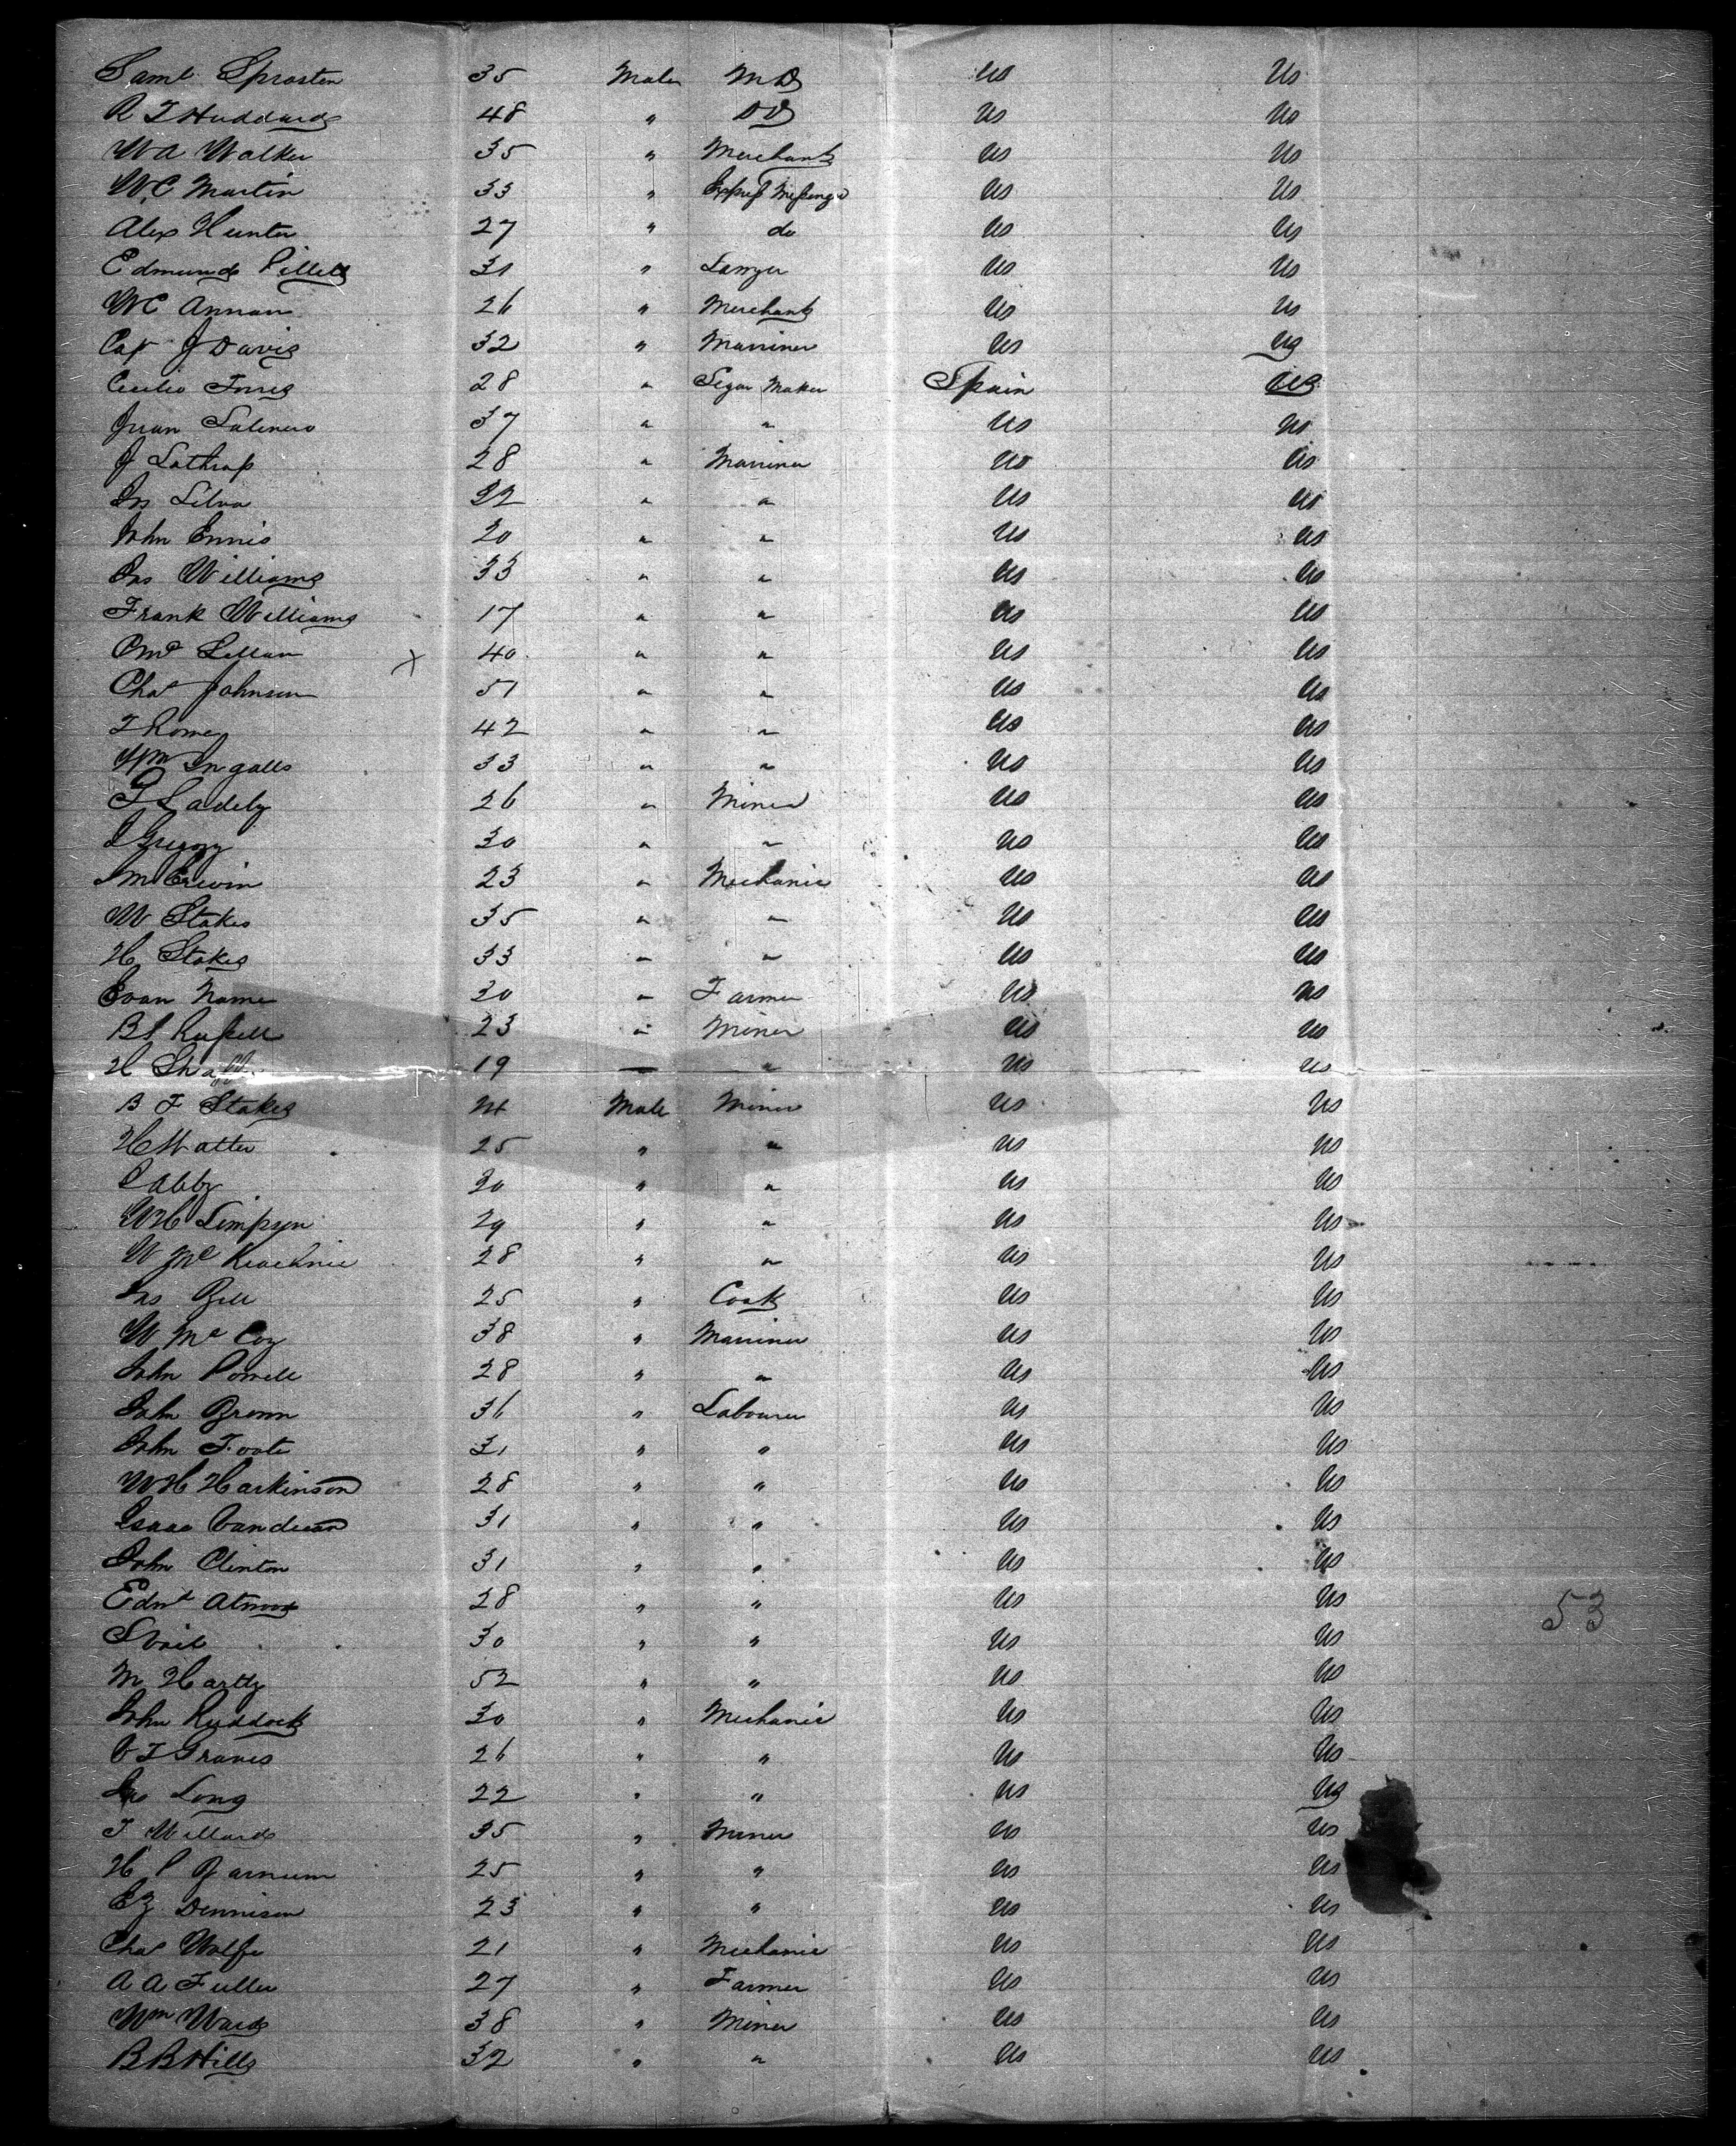 Saml Sprosten 35 Male MD US US
R T Huddard 48 " DD US US
W A Walker 35 " Merchant US US
W C Martin 33 " Express Messenger US US
Alex Hunter 27 " do US US
Edmund 31 " Lawyer US US
W C Annan 26 " Merchant US US
Cap J Davis 32 " Marriner US US
Cecilio Torres 28 " Segar Maker Spain US
Juan Salinero 37 " " US US
J Lathrop 28 " Marriner US US
Jos Silva 22 " " US US
John Ennis 20 " " US US
Jas Williams 33 " " US US
Frank Williams 17 " " US US
x 40 " " US US
Chas Johnson 51 " " US US
T Romey 42 " " US US
Wm Ingalls 33 " " US US
26 " Miner US US
J Gregory 30 " " US US
J M Erwin 23 " Mechanic US US
W Stokes 35 " " US US
H Stokes 33 " " US US
Evan Name 30 " Farmer US US
B S Russell 23 " Miner US US
H 19 " " US US
B F Stokes 24 Male Miner US US
H Watter 25 " " US US
20 " " US US
W H Simpson 29 " " US US
W Mc 28 " " US US
Jas Bell 25 " Cook US US
W McCoy 38 " Marriner US US
John Powell 28 " " US US
John Brown 36 " Labourer US US
John Foote 31 " " US US
W H Harkinson 28 " " US US
Isaac 31 " " US US
John Clinton 31 " " US US
Edwd Atwood 28 " " US US
S Vail 30 " " US US
53
M Hartty 52 " " US US
John Ruddock 30 " Mechanic US US
O T Graves 26 " " US US
Jas Long 22 " " US US
T Willard 35 " Miner US US
H P Barnum 25 " " US US
E Z Dennison 23 " " US US
Chas Wolfe 21 " Mechanic US US
A A Fuller 27 " Farmer US US
Wm Ward 38 " Miner US US
B B Hills 32 " " US US